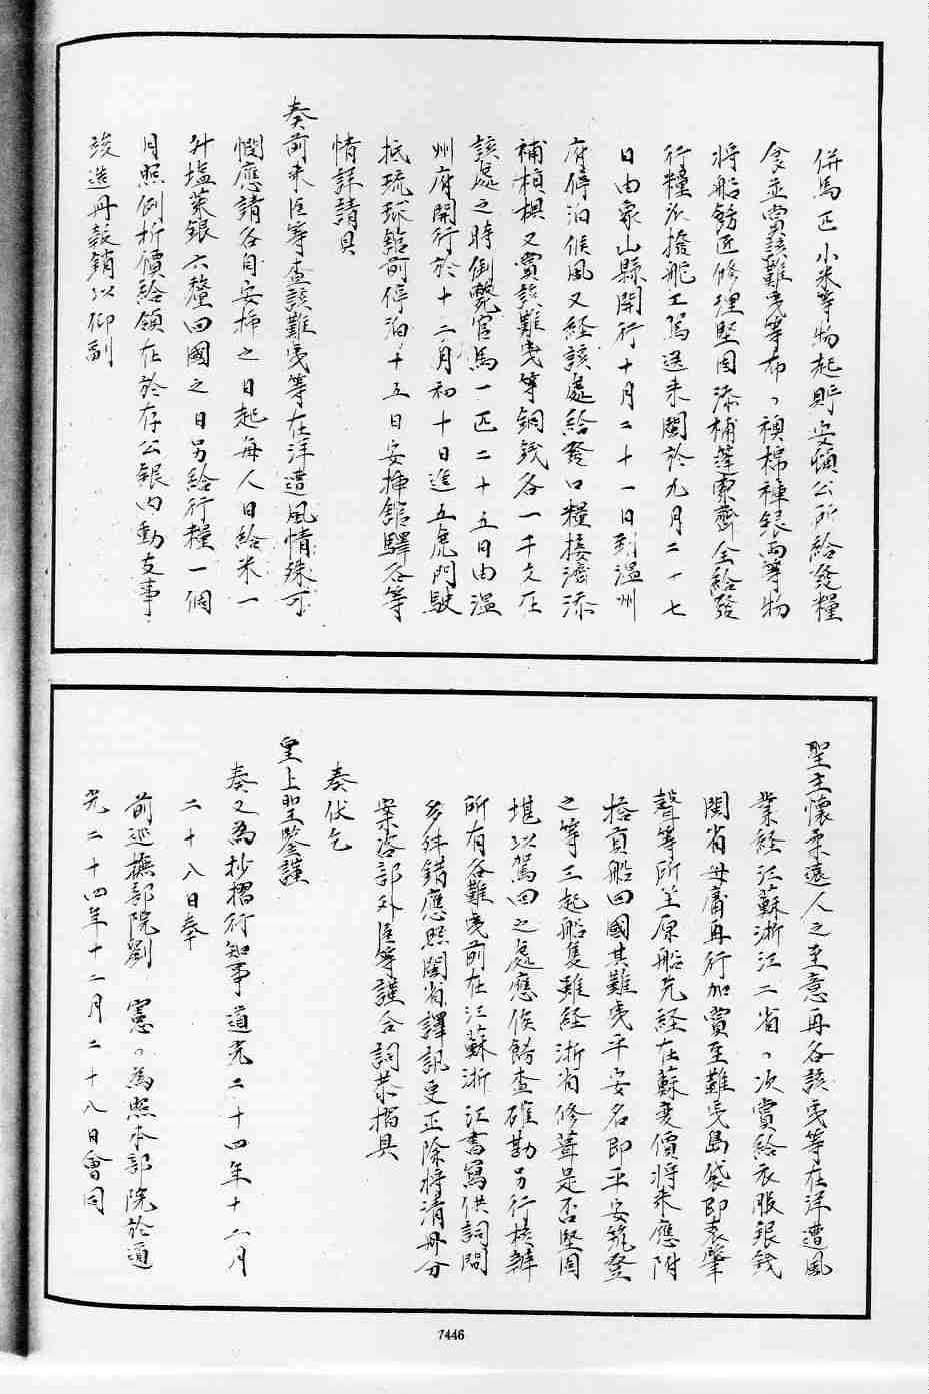 併馬匹小米等物起貯安頓公所給發糧
食並賞該難曳等布、襖棉褲銀両等物
将船餝匠修理堅固添補篷索齊全給發
行糧派撥舵工駕送来閩於九月二十七
日由象山縣開行十月二十一日到温州
府停泊候風又経該處給發口糧接濟添
補槓椇又賞該難曳等銅銭各一千文在
該處之時倒斃官馬一匹二十五日由温
州府開行於十二月初十日進五虎門駛
抵琉球館前停泊十五日安挿館驛各等
情詳請具
奏前来臣等査該難曳等在洋遭風情殊可
憫應請各自安挿之日起毎人日給米一
升塩菜銀六釐回國之日另給行糧一個
月照例折價給領在於存公銀内動支事
竣造冊報銷以仰副
聖主懐柔遠人之至意再各該曳等在洋遭風
業経江蘇浙江二省、次賞給衣服銀銭
閩省毋庸再行加賞至難曳島袋即表肇
聲等所坐原船先経在蘇変價将来應附
搭貢船回國其難曳平安名即平安筑登
之等三起船隻雖経浙省修葺是否堅固
堪以駕回之處應俟餝査確勘另行核辦
所有各難曳前在江蘇浙江書寫供詞間
多舛錯應照閩省譯訊更正除将清冊分
案咨部外臣等謹合詞恭摺具
奏伏乞
皇上聖鑒謹
奏又為抄摺行知事道光二十四年十二月
二十八日奉
前巡撫部院劉 憲、為照本部院於道
光二十四年十二月二十八日會同
7446